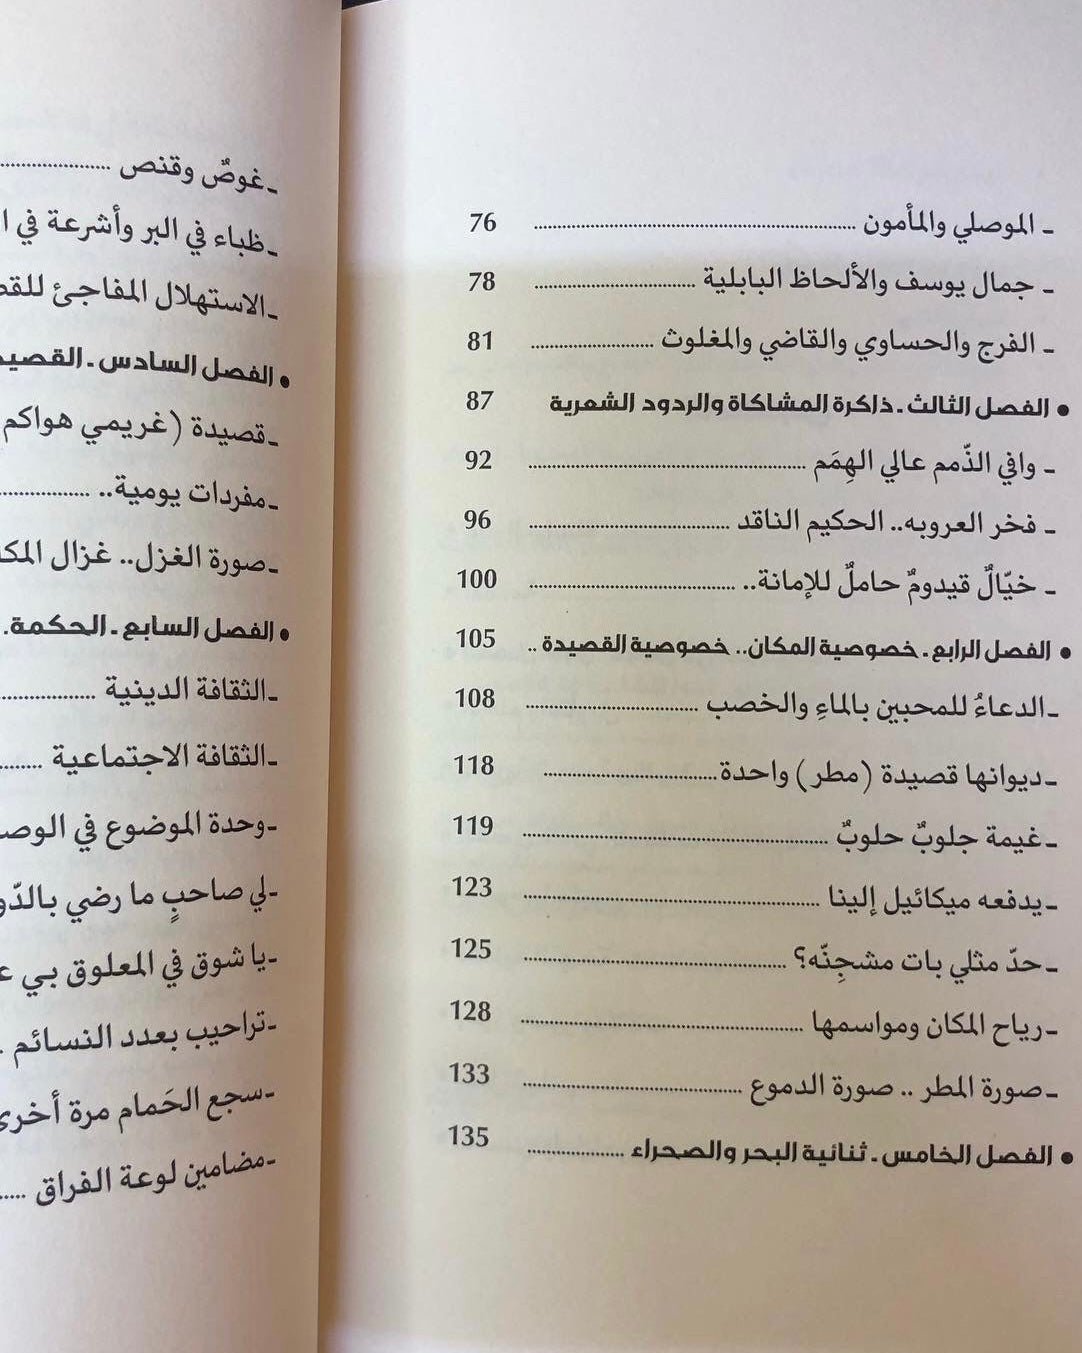 ـ الموصلي والمأمون ........ 76
ـ جمال يوسف والألحاظ البابلية ........ 78
ـ الفرج والحساوي والقاضي والمغلوث ........ 81
• الفصل الثالث ـ ذاكرة المشاكاة والردود الشعرية 87
ـ وافي الذّمم عالي الهِمَم ........ 92
ـ فخر العروبه.. الحكيم الناقد ........ 96
ـ خيّالٌ قيدومٌ حاملٌ للإمانة.. ........ 100
• الفصل الرابع ـ خصوصية المكان.. خصوصية القصيدة .. 105
ـ الدعاءُ للمحبين بالماءِ والخصب ........ 108
ـ ديوانها قصيدة (مطر) واحدة ........ 118
ـ غيمة جلوبٌ حلوبٌ ........ 119
ـ يدفعه ميكائيل إلينا ........ 123
ـ حدّ مثلي بات مشجِنّه؟ ........ 125
ـ رياح المكان ومواسمها ........ 128
ـ صورة المطر .. صورة الدموع ........ 133
• الفصل الخامس ـ ثنائية البحر والصحراء ........ 135
ـ غوصٌ وقنص ........
ـ ظباء في البر وأشرعة في
ـ الاستهلال المفاجئ
• الفصل السادس ـ
ـ قصيدة (غريمي هواكم
ـ مفردات يومية.. ........
ـ صورة الغزل.. غزال
• الفصل السابع ـ الحكمة.
ـ الثقافة الدينية ........
ـ الثقافة الاجتماعية ........
ـ وحدة الموضوع في
ـ لي صاحبٍ ما رضي
ـ يا شوق في المعلوق بي
ـ تراحيب بعدد النسائم .
ـ سجع الحَمام مرة أخرى
ـ مضامين لوعة الفراق ........